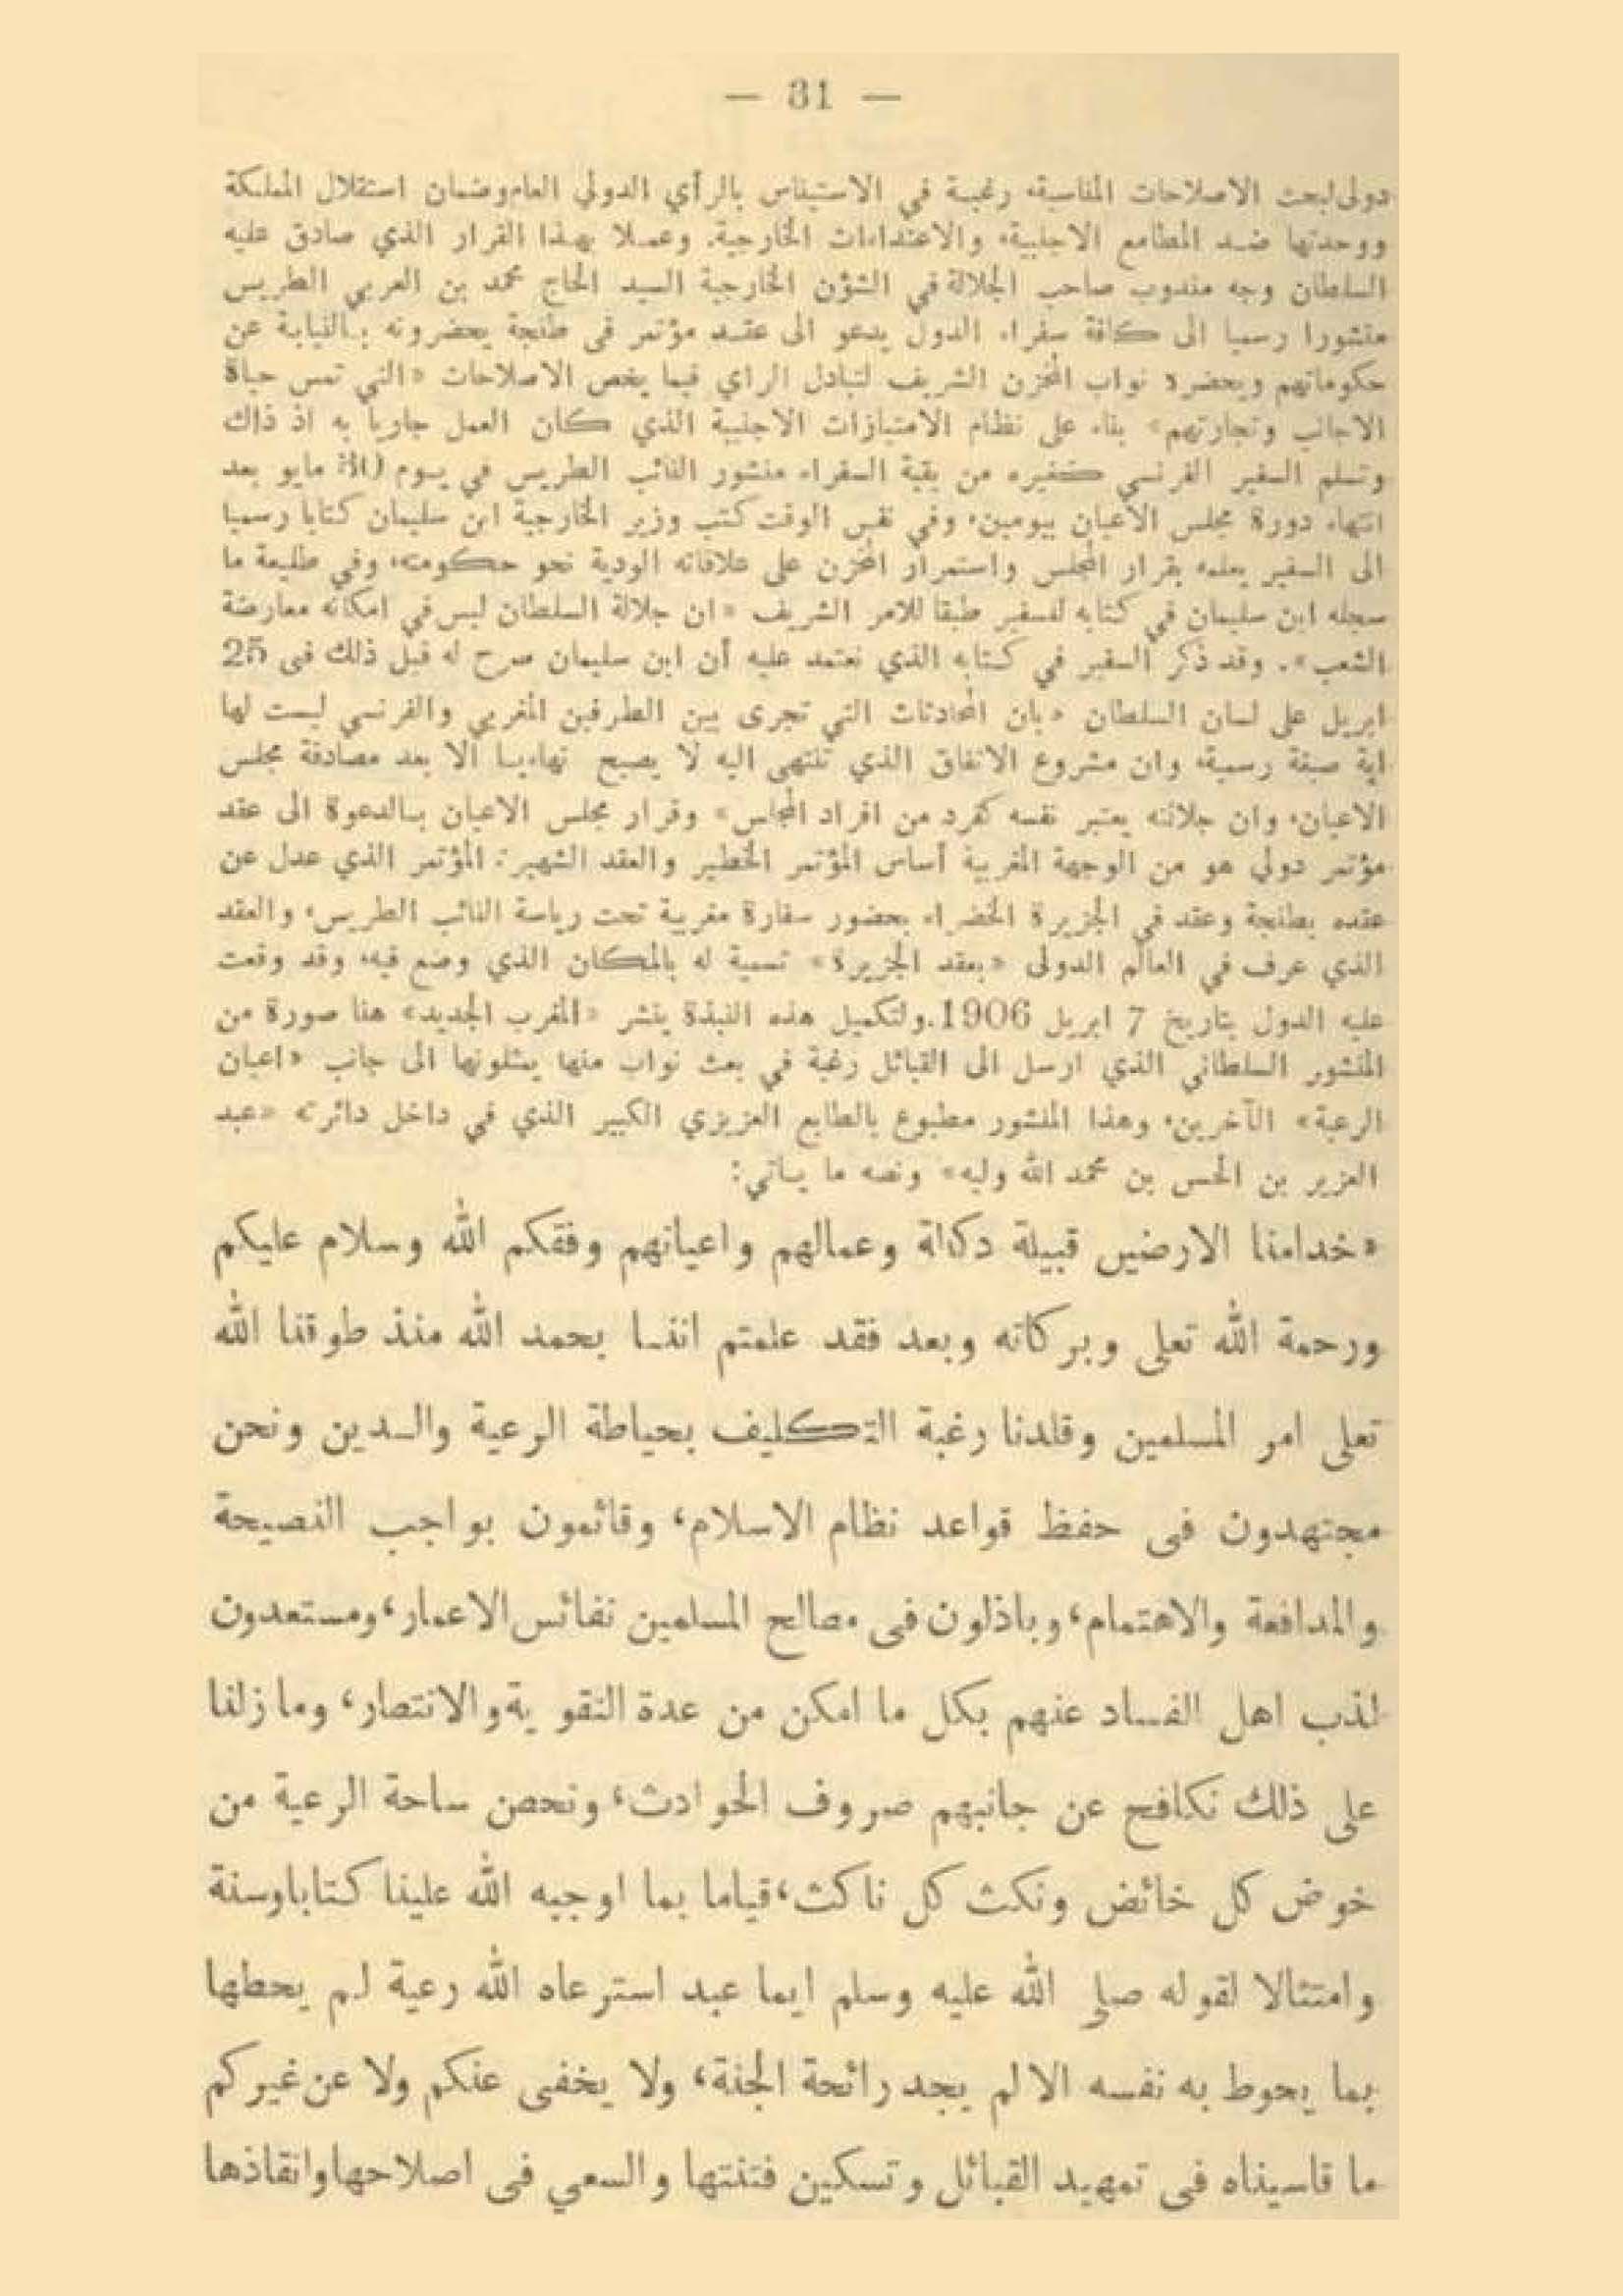 — 31 —
دولى لبحث الاصلاحات المناسبة، رغبة في الاستيناس بالرأي الدولي العام وضمان استقلال المملكة
ووحدتها ضد المطامع الاجنبية، والاعتداءات الخارجية. وعملا بهذا القرار الذي صادق عليه
السلطان وجه مندوب صاحب الجلالة في الشؤن الخارجية السيد الحاج محمد بن العربي الطريس
منشورا رسميا الى كافة سفراء الدول يدعو الى عقد مؤتمر فى طنجة يحضرونه بالنيابة عن
حكوماتهم ويحضره نواب المخزن الشريف لتبادل الراي فيما يخص الاصلاحات «التي تمس حياة
الاجانب وتجارتهم» بناء على نظام الامتيازات الاجنبية الذي كان العمل جاريا به اذ ذاك
وتسلم السفير الفرنسي كغيره من بقية السفراء منشور النائب الطريس في يوم مايو بعد
انتهاء دورة مجلس الأعيان بيومين، وفي نفس الوقت كتب وزير الخارجية ابن سليمان كتابا رسميا
الى السفير يعلمه بقرار المجلس واستمرار المخزن على علاقاته الودية نحو حكومته، وفي طليعة ما
سجله ابن سليمان في كتابه لسفير طبقا للامر الشريف «ان جلالة السلطان ليس في امكانه معارضة
الشعب». وقد ذكر السفير في كتابه الذي نعتمد عليه أن ابن سليمان صرح له قبل ذلك فى 25
ابريل على لسان السلطان «بان المحادثات التي تجرى بين الطرفين المغربي والفرنسي ليست لها
اية صبغة رسمية، وان مشروع الاتفاق الذي تنتهى اليه لا يصبح نهاءيا الا بعد مصادقة مجلس
الاعيان، وان جلالته يعتبر نفسه كفرد من افراد المجلس» وقرار مجلس الاعيان بالدعوة الى عقد
مؤتمر دولي هو من الوجهة المغربية أساس المؤتمر الخطير والعقد الشهير: المؤتمر الذي عدل عن
عقده بطنجة وعقد في الجزيرة الخضراء بحضور سفارة مغربية تحت رياسة النائب الطريس، والعقد
الذي عرف في العالم الدولى «بعقد الجزيرة» تسمية له بالمكان الذي وضع فيه، وقد وقعت
عليه الدول بتاريخ 7 ابريل 1906.ولتكميل هذه النبذة ينشر «المغرب الجديد» هنا صورة من
المنشور السلطاني الذي ارسل الى القبائل رغبة في بعث نواب منها يمثلونها الى جانب «اعيان
الرعية» الآخرين، وهذا المنشور مطبوع بالطابع العزيزي الكبير الذي في داخل دائرته «عبد
العزيز بن الحسن بن محمد الله وليه» ونصه ما يأتي:
«خدامنا الارضين قبيلة دكالة وعمالهم واعيانهم وفقكم الله وسلام عليكم
ورحمة الله تعلى وبركاته وبعد فقد علمتم اننا بحمد الله منذ طوقنا الله
تعلى امر المسلمين وقلدنا رغبة التكليف بحياطة الرعية والدين ونحن
مجتهدون فى حفظ قواعد نظام الاسلام، وقائمون بواجب النصيحة
والمدافعة والاهتمام، وباذلون فى مصالح المسلمين نفائس الاعمار، ومستعدون
لذب اهل الفساد عنهم بكل ما امكن من عدة التقوية والانتصار، وما زلنا
على ذلك نكافح عن جانبهم صروف الحوادث، ونحصن ساحة الرعية من
خوض كل خائض ونكث كل ناكث، قياما بما اوجبه الله علينا كتابا وسنة
وامتثالا لقوله صلى الله عليه وسلم ايما عبد استرعاه الله رعية لم يحطها
بما يحوط به نفسه الا لم يجد رائحة الجنة، ولا يخفى عنكم ولا عن غيركم
ما قاسيناه فى تمهيد القبائل وتسكين فتنتها والسعي فى اصلاحها وانقاذها